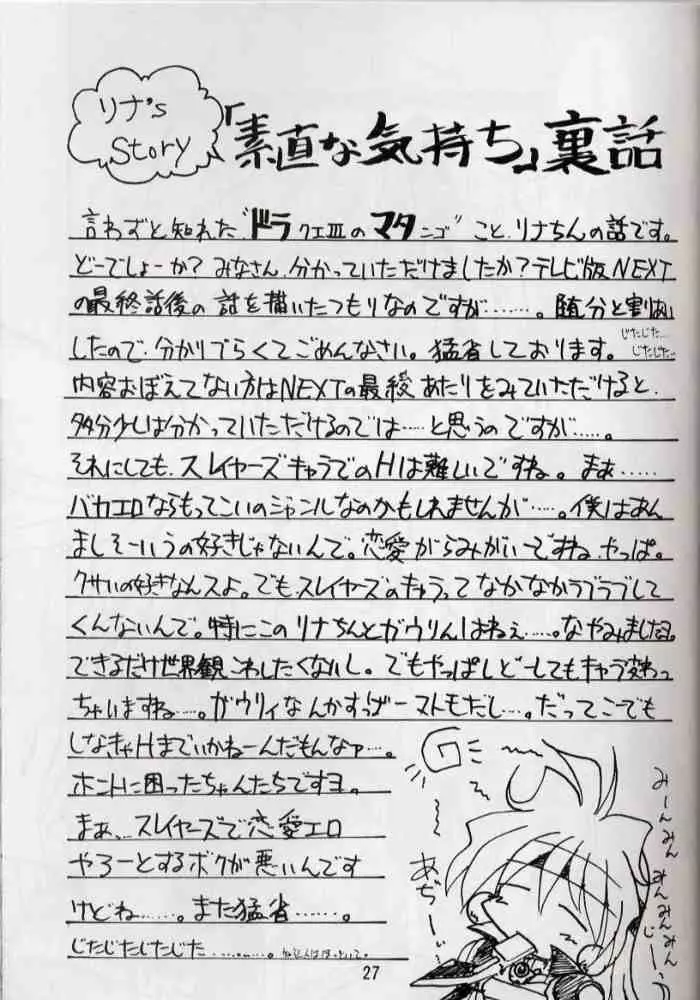 リナ's
Story
「素直な気持ち」裏話
言わずと知れた"ドラクエⅢのマタンゴ"こと、リナちんの話です。
どーでしょーか？みなさん、分かっていただけましたか？テレビ版NEXT
の最終話後の話を描いたつもりなのですが……。随分と割あい
したので、分かりづらくてごめんなさい。猛省しております。
じたじた…
じたじた…
内容おぼえてない方はNEXTの最終あたりをみていただけると、
多分少しは分かっていただけるのでは…と思うのですが……。
それにしても、スレイヤーズキャラでのHは難しいですね。まぁ……
バカエロならもってこいのジャンルなのかもしれませんが……。僕はあん
ましそーいうの好きじゃないんで。恋愛がらみがいーですね、やっぱ。
クサいの好きなんスよ。でもスレイヤーズのキャラってなかなかラブラブして
くんないんで。特にこのリナちんとガウリんはねぇ……。なやみましたョ。
できるだけ世界観こわしたくないし。でもやっぱしどーしてもキャラ変わっ
ちゃいますね……。ガウリィなんかすっげーマトモだし…。だってこーでも
しなきゃHまでいかねーんだもんなァ…。
ホントに困ったちゃんたちですヨ。
まぁ、スレイヤーズで恋愛エロ
やろーとするボクが悪いんです
けどね……。また猛省……。
じたじたじたじた…………。
G
あぢーぃ
みーんみん
みんみんみん
じーぅ
27